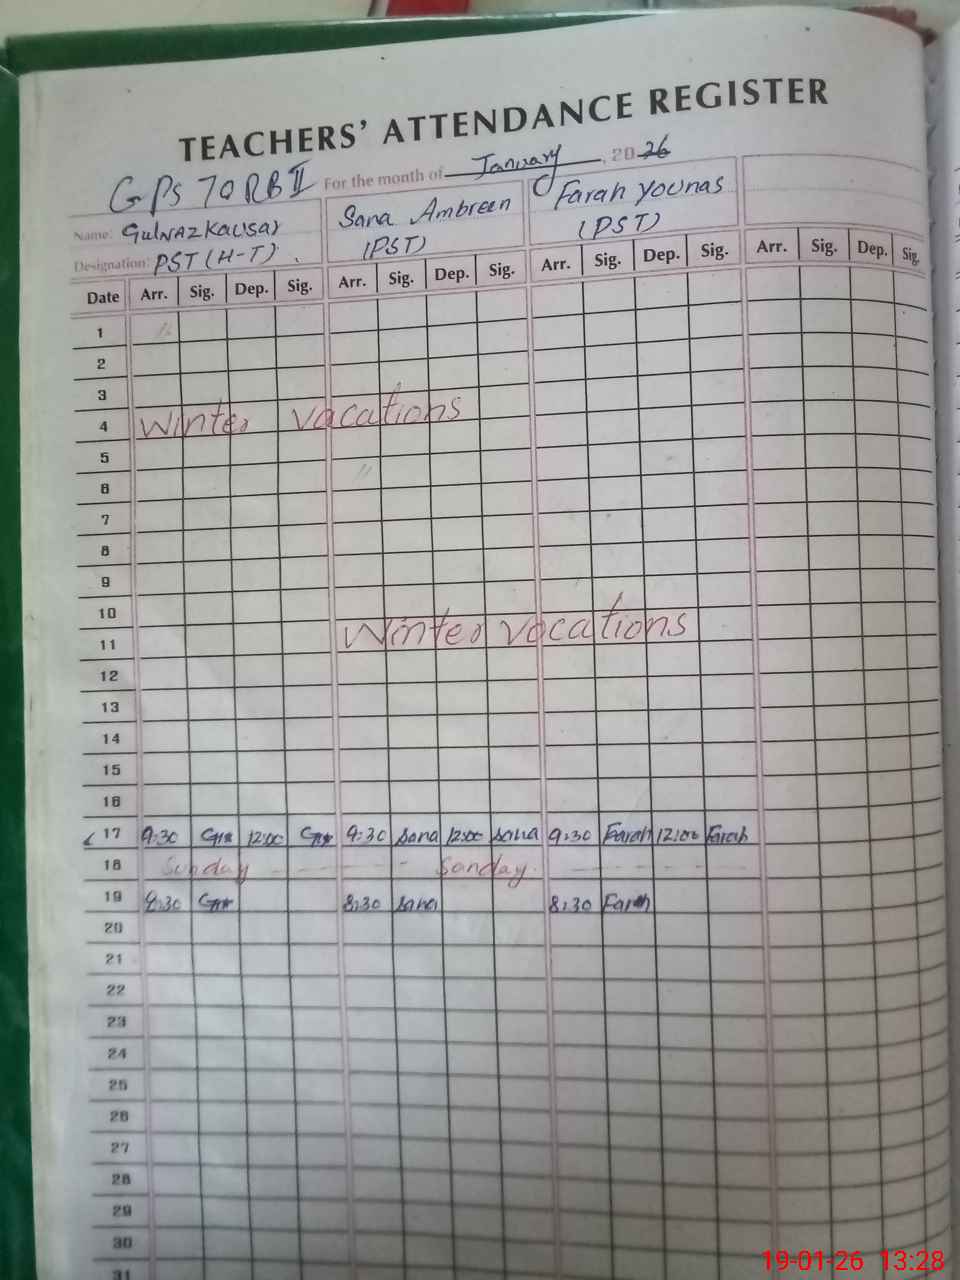 TEACHERS' ATTENDANCE REGISTER
GPS 70 RB II For the month of January, 2026
Name: Gulnaz Kausar Sana Ambreen Farah Younas
Designation: PST (H-T) (PST) (PST)
Date Arr. Sig. Dep. Sig. Arr. Sig. Dep. Sig. Arr. Sig. Dep. Sig. Arr. Sig. Dep. Sig.
1
2
3
4 Winter vacations
5
6
7
8
9
10
11 Winter vacations
12
13
14
15
16
17 9:30 12:00 9:30 Sana 12:00 Sana 9:30 Farah 12:00 Farah
18 Sunday - - - - - Sunday - - - - -
19 8:30 8:30 Sana 8:30 Farah
20
21
22
23
24
25
26
27
28
29
30
31
19-01-26 13:28